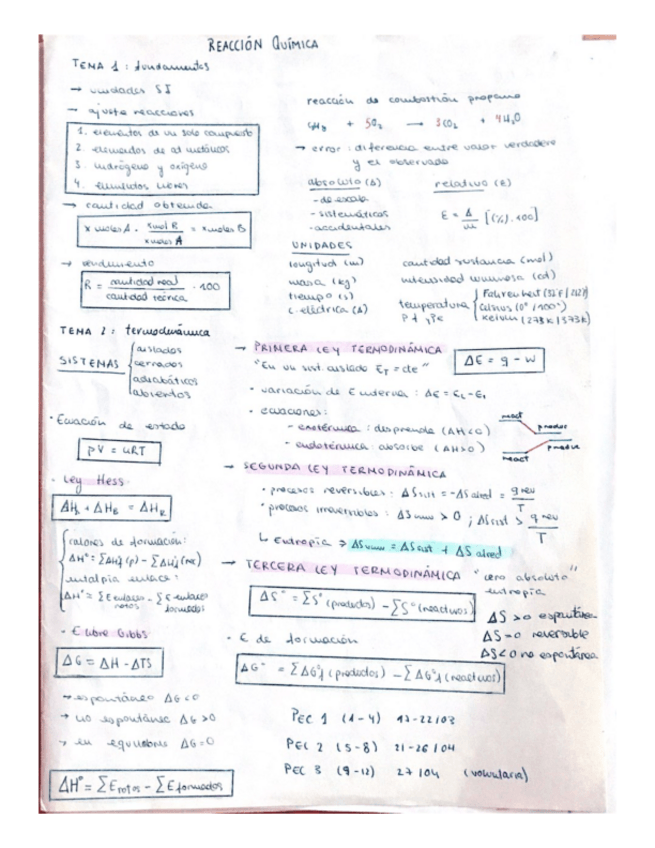 REACCIÓN QUÍMICA
TEMA 1: fundamentos
→ unidades SI
→ ajuste reacciones
1. elementos de un solo compuesto
2. elementos de ad metálicos
3. hidrógeno y oxígeno
4. elementos libres
→ cantidad obtenida
x moles A · ymol B / x moles A = x moles B
→ rendimiento
R = cantidad real / cantidad teórica · 100
reacción de combustión propano
C3H8 + 5O2 → 3CO2 + 4H2O
→ error: diferencia entre valor verdadero
y el observado
absoluto (Δ) relativo (E)
- de escala
- sistemáticos
- accidentales
E = Δ/m [(%).100]
UNIDADES
longitud (m) cantidad sustancia (mol)
masa (kg) intensidad luminosa (cd)
tiempo (s)
c. eléctrica (A)
temperatura
Fahrenheit (32F / 212F)
Celsius (0° / 100°)
Kelvin (273K / 373K)
TEMA 2: termodinámica
SISTEMAS
aislados
cerrados
adiabáticos
abiertos
· Ecuación de estado
pV = nRT
· Ley Hess
ΔHA + ΔHB = ΔHR
calores de formación:
ΔH° = ΣΔHf°(p) - ΣΔHf°(rec)
entalpía enlace:
ΔH° = ΣE enlaces rotos - ΣE enlaces formados
· E libre Gibbs
ΔG = ΔH - ΔTS
→ espontáneo ΔG<0
→ no espontánea ΔG>0
→ en equilibrio ΔG=0
ΔH° = ΣE rotos - ΣE formados
→ PRIMERA LEY TERMODINÁMICA
ΔE = q - W
"En un sist. aislado ET = cte"
· variación de E interna: ΔE = Ef - Ei
· ecuaciones:
- exotérmica: desprende (ΔH<0)
- endotérmica: absorbe (ΔH>0)
react
produc
produc
react
→ SEGUNDA LEY TERMODINÁMICA
· procesos reversibles: ΔSsist = -ΔSalred = q rev / T
· procesos irreversibles: ΔSuniv > 0; ΔSsist > q rev / T
↳ Entropía → ΔSuniv = ΔSsist + ΔSalred
→ TERCERA LEY TERMODINÁMICA "cero absoluto"
entropía
ΔS° = ΣS°(productos) - ΣS°(reactivos)
ΔS>0 espontánea
ΔS=0 reversible
ΔS<0 no espontánea
· E de formación
ΔG° = ΣΔG°f (productos) - ΣΔG°f (reactivos)
PEC 1 (1-4) 17-22/03
PEC 2 (5-8) 21-26/04
PEC 3 (9-12) 27/04 (voluntaria)